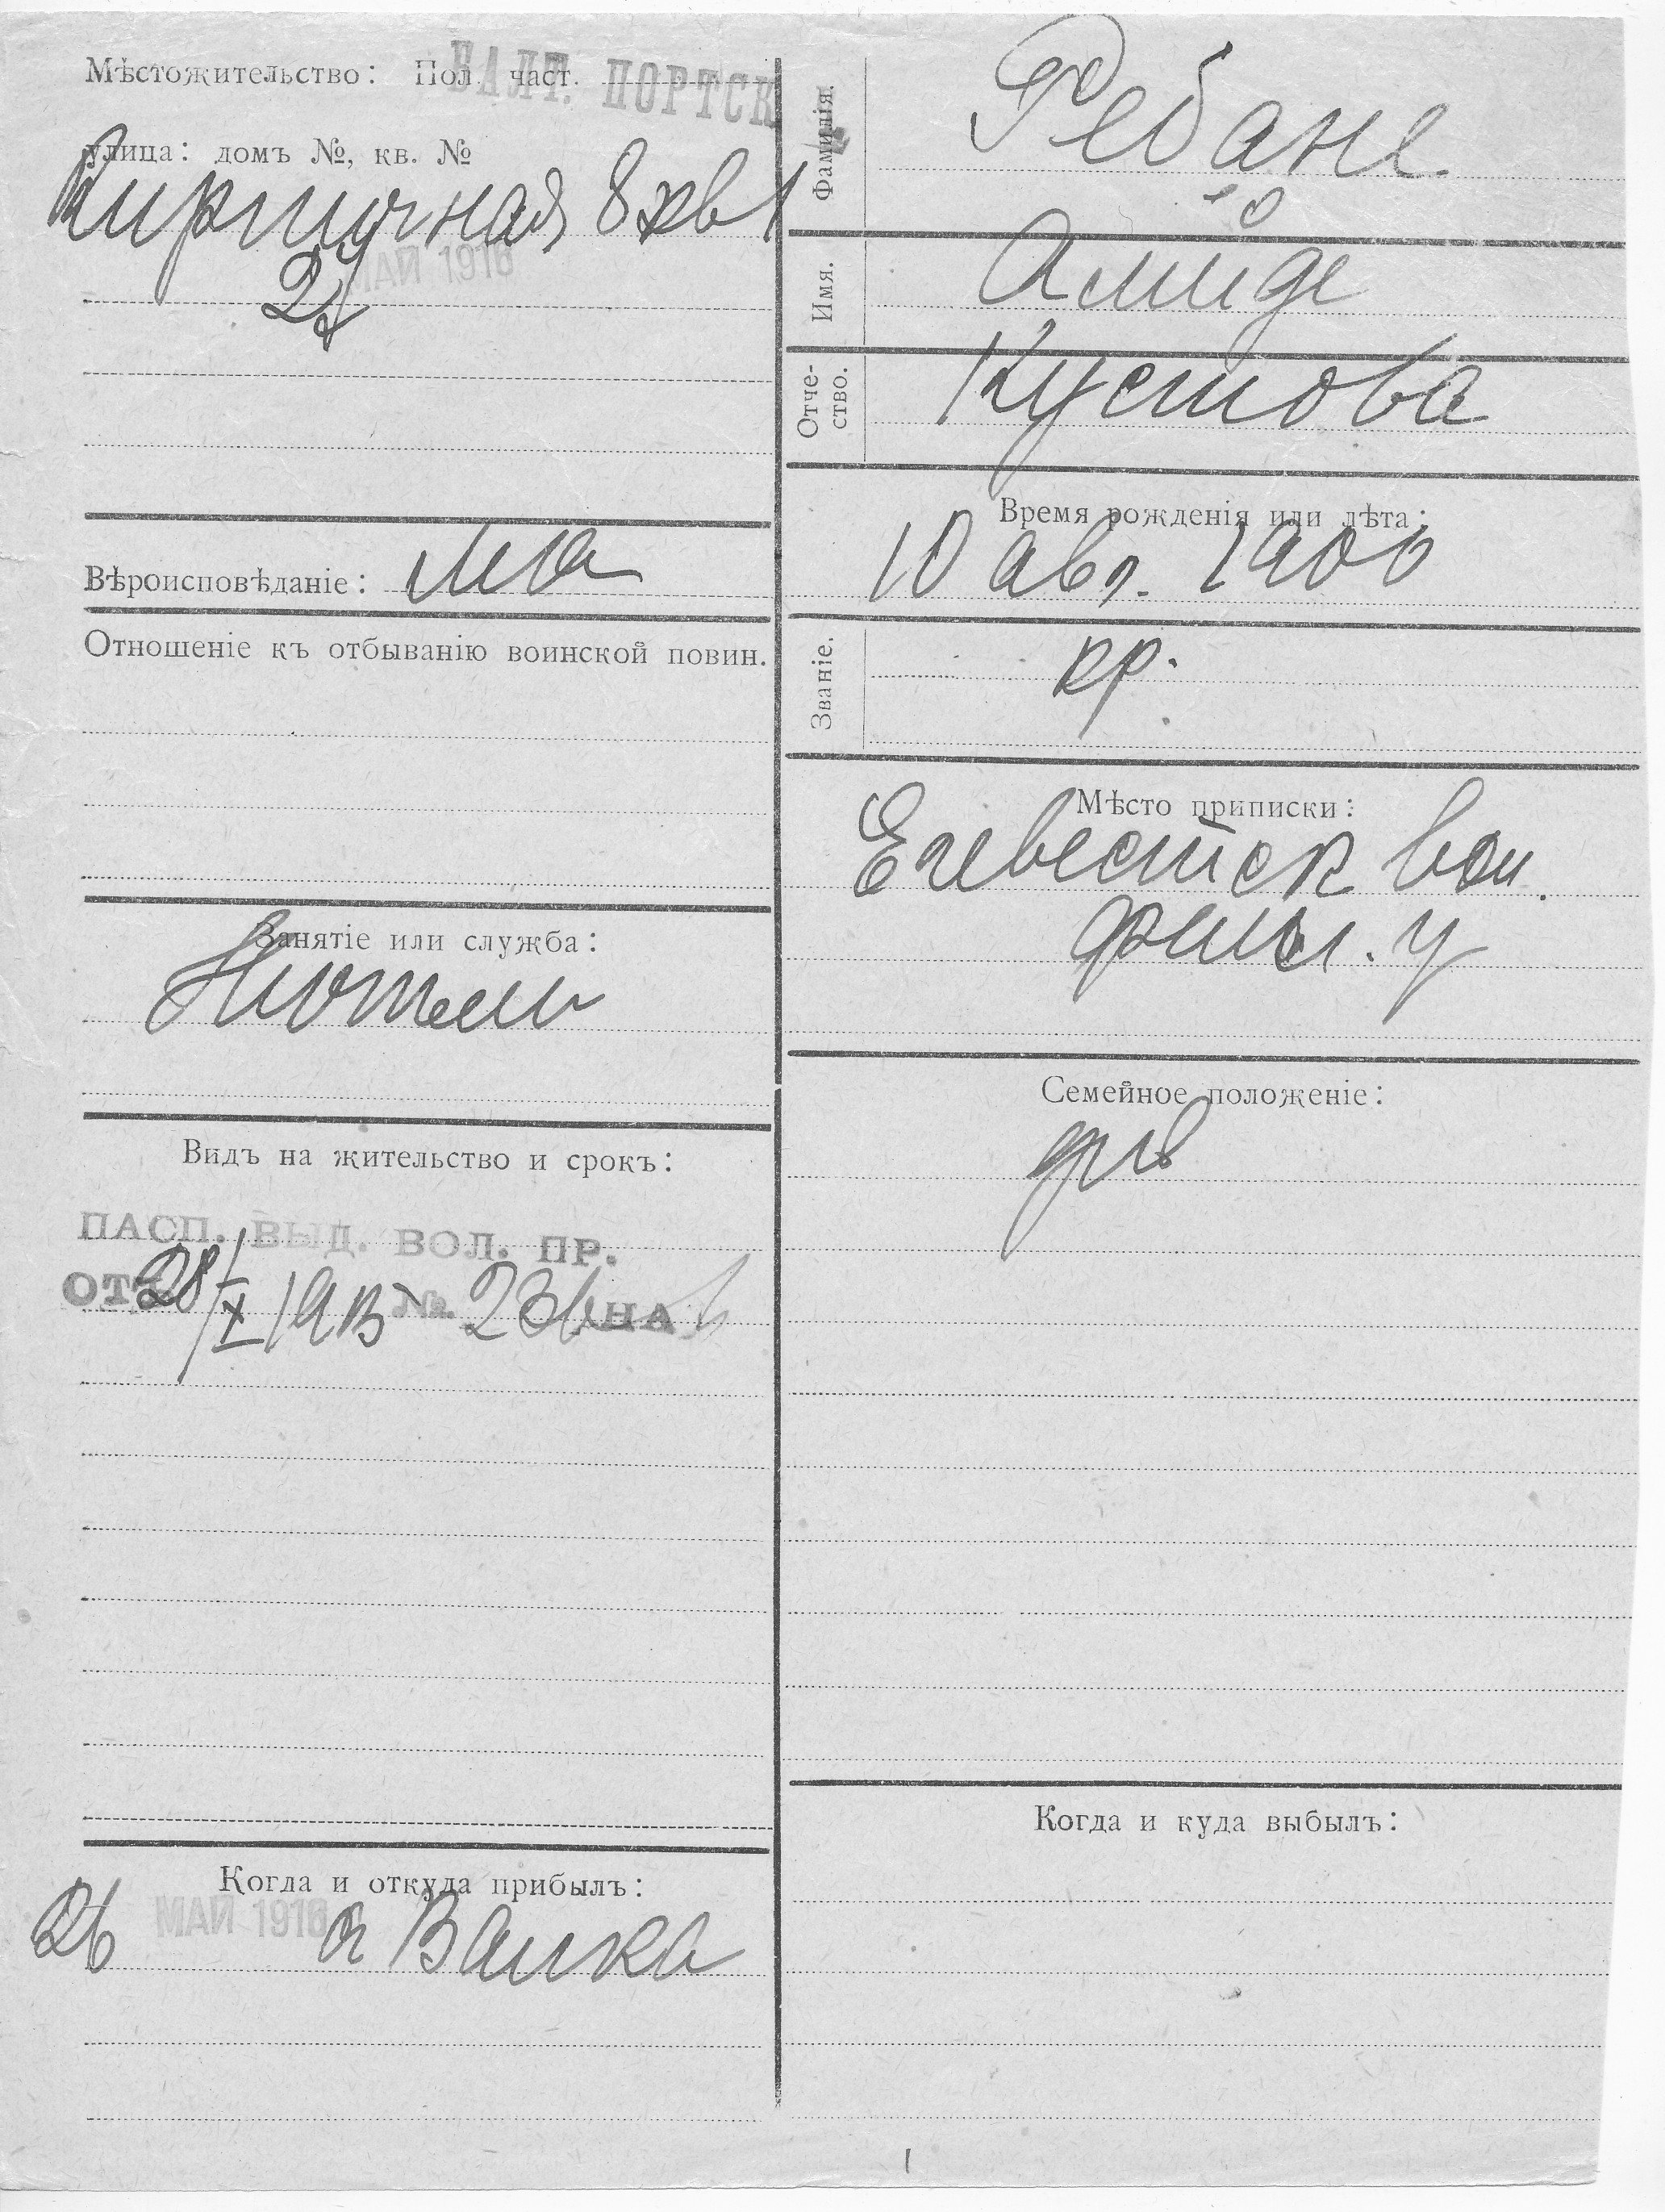 Мѣстожительство: Пол. част.
БАЛТ. ПОРТСК
улица: домъ №, кв. №
Кирпичная 8 кв 1
МАЙ 1916
Вѣроисповѣданіе:
Отношеніе къ отбыванію воинской повин.
Занятіе или служба:
Видъ на жительство и срокъ:
ПАСП. ВЫД. ВОЛ. ПР.
ОТЪ 28/X 1915 № НА
Когда и откуда прибылъ:
26 МАЙ 1916 Валка
Фамилія. Ребане.
Имя.
Отче-
ство. Кустова
Время рожденія или лѣта:
10 авг. 1900
Званіе. кр.
Мѣсто приписки:
вол.
у
Семейное положеніе:
дѣв
Когда и куда выбылъ: